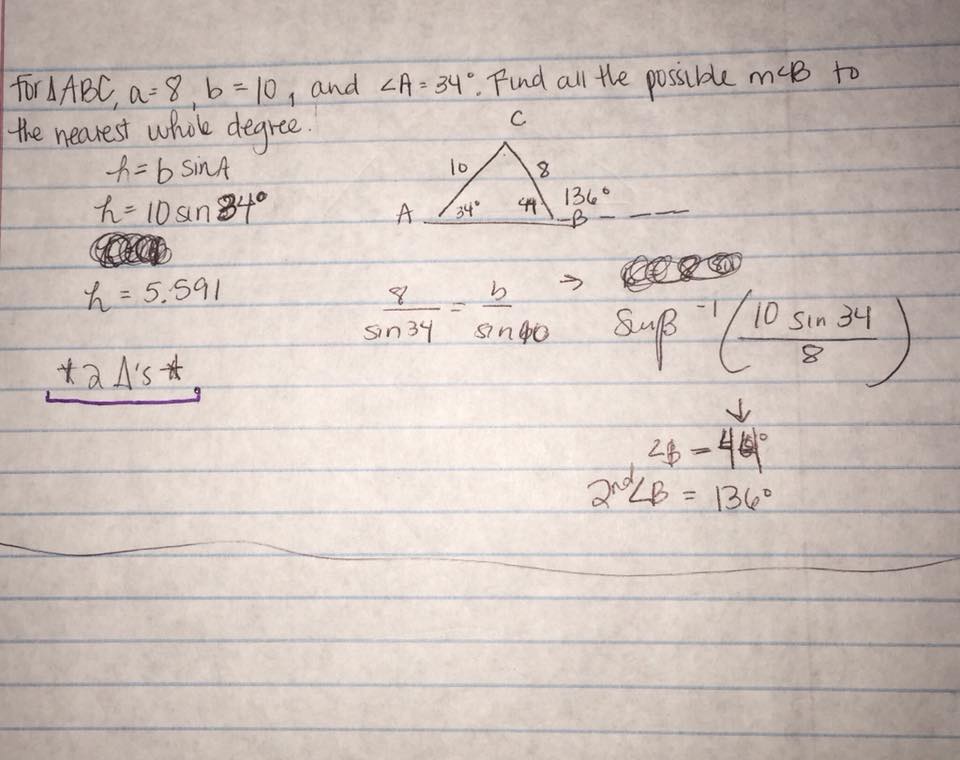 For △ABC, a=8, b=10, and ∠A=34°. Find all the possible m∠B to
the nearest whole degree.
h=b sinA
h=10 sin 34°
h = 5.591
*2 Δ's*
C
10
8
A
34°
44
136°
B
8/sin34 = b/sin →
SinB ⁻¹ (10 sin 34/8)
↓
∠B = 44°
2nd ∠B = 136°